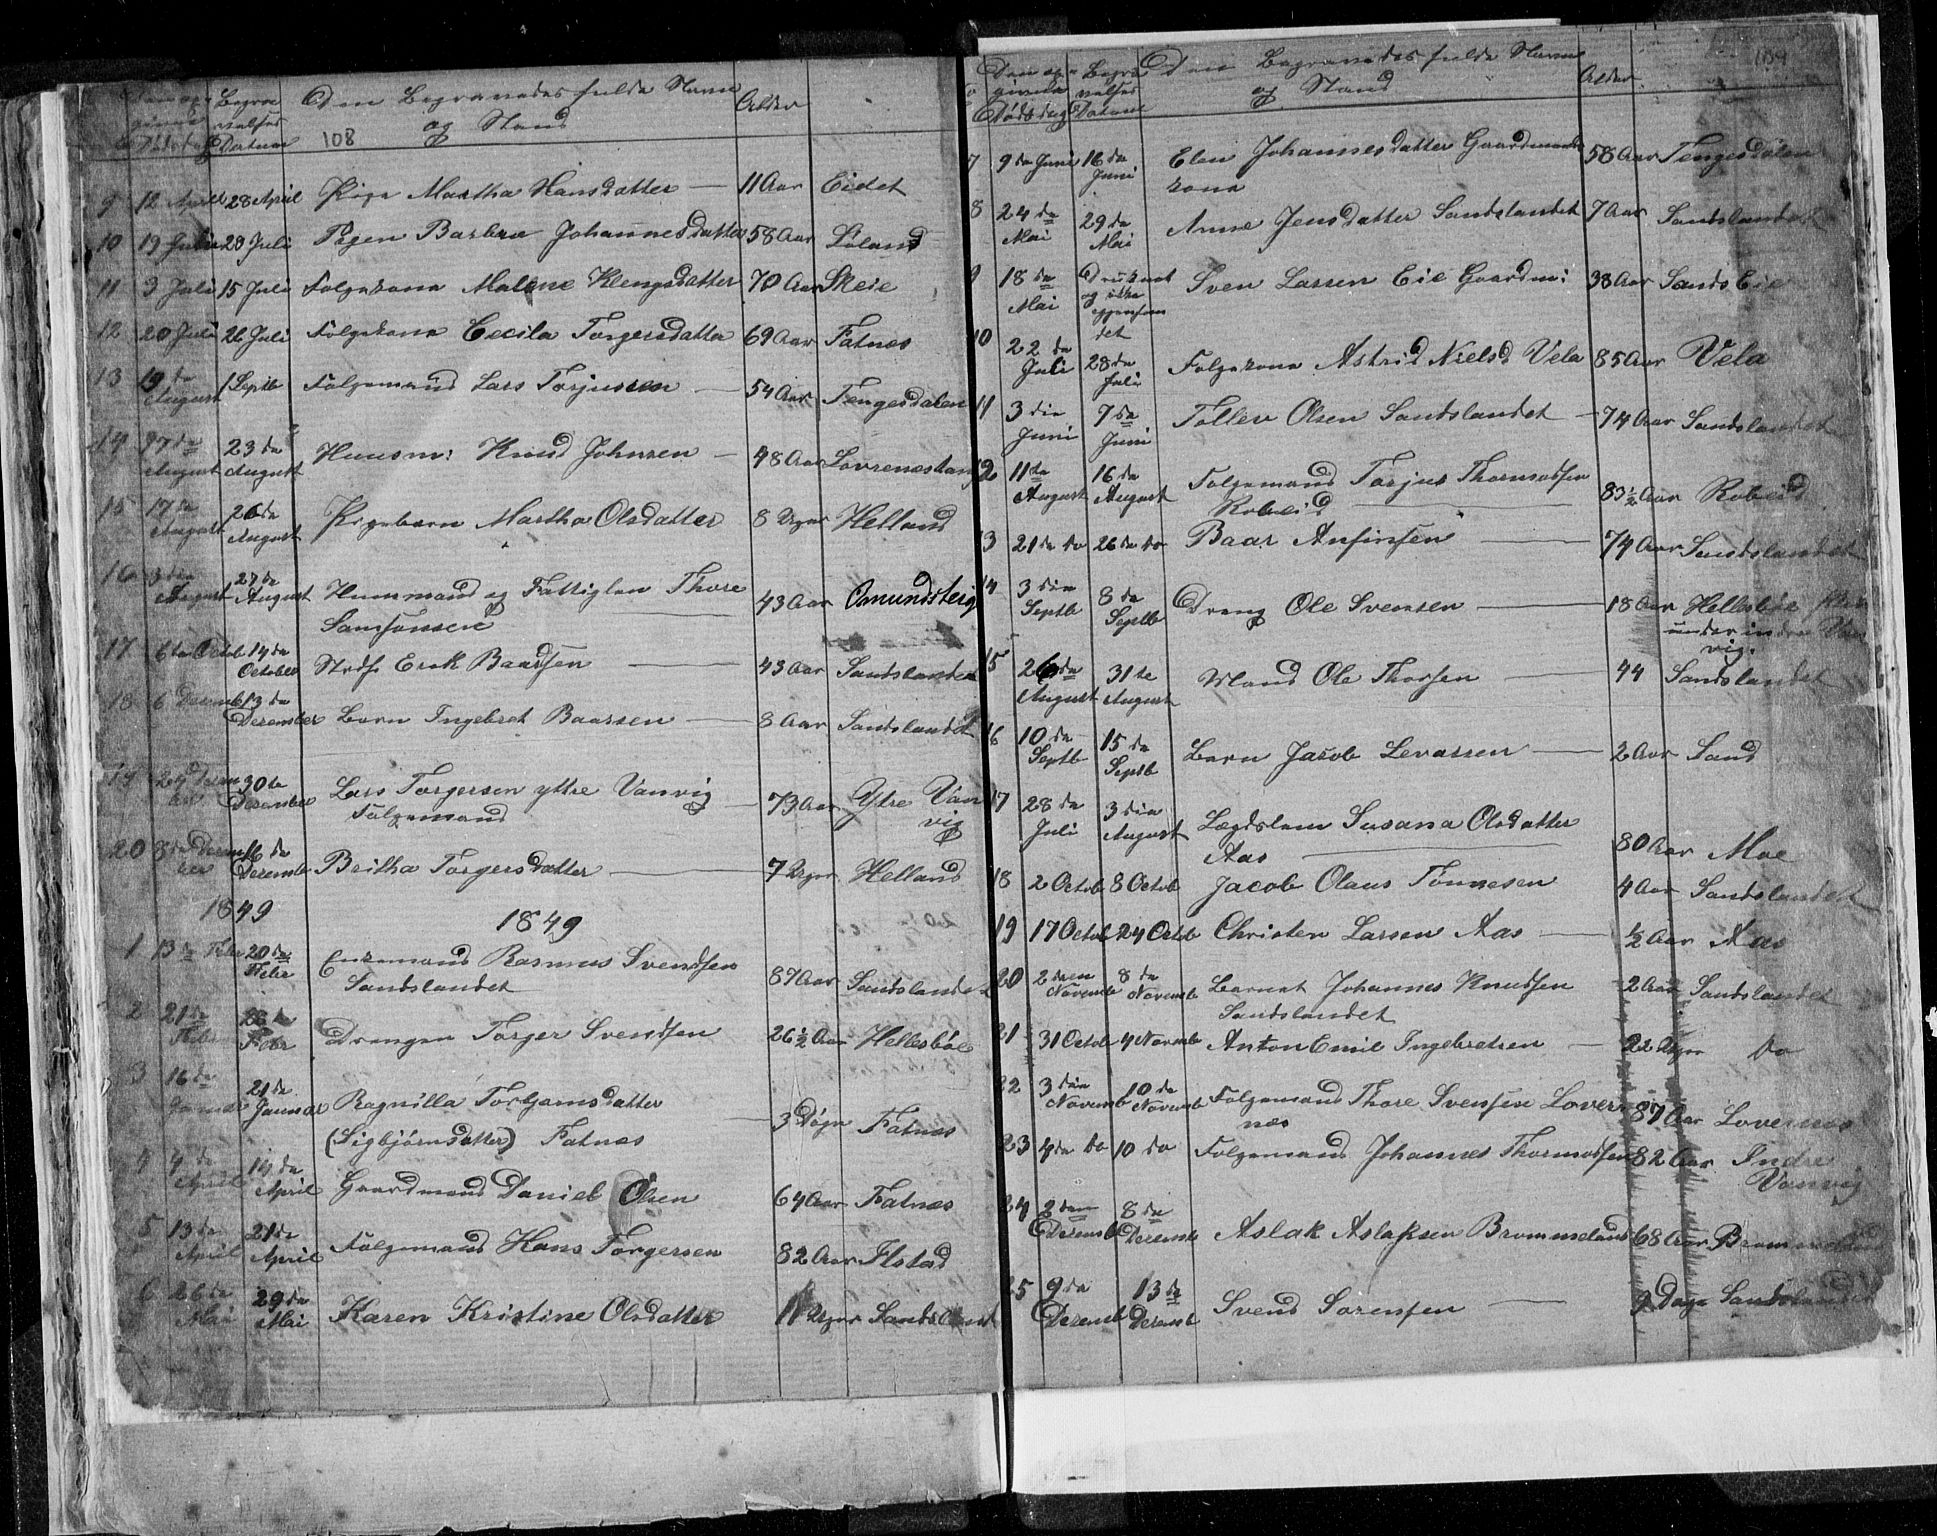 Den op-
givne
Dødsdag
Begra-
velses
Datum
Den Begravedes fulde Navn
og Stand
Alder
108
9 12 April 28 April Pige Martha Hansdatter 11 Aar Eidet
10 19 Juli 29 Juli Pigen Barbra Johannesdatter 58 Aar Løland
11 3 Juli 15 Juli Folgekone Malene Klengsdatter 70 Aar Skeie
12 20 Juli 26 Juli Folgekone Cecila Torgersdatter 69 Aar Fatnæs
13 19 de August 1 Septb Folgemand Lars Torjussen 54 Aar Tengesdalen
14 17 de August 23 de August Huusm: Knud Johnsen 48 Aar
15 17 de August 26 de August Pigebarn Martha Olsdatter 8 Uger Helland
16 3 die August 27 de August Huusmand og Fattiglem Thore
Samsonsen 43 Aar Omundsteig
17 6 te Octob 14 de October Erek Baardsen 43 Aar Sandslandet
18 6 Decemb 13 de December Barn Ingebret Baarsen 8 Aar Sandslandet
19 24 Decem ber 30 te December Lars Torgersen yttre Vanvig
Folgemand 73 Aar Ytre Van
vig
20 8 de Decem ber 16 de Decemb Britha Torgersdatter 7 Uger Helland
1849 1849
1 13 de Febr 20 de Febr Enkemand Rasmus Svendsen
Sandslandet 87 Aar Sandslandet
2 21 de Febr 28 de Febr Drengen Torger Svendsen 26 ½ Aar Hellesbøe
3 16 de Januar 21 de Januar Ragnilla Torbjørnsdatter
(Sigbjørnsdatter) Fatnæs 3 Døgn Fatnæs
4 4 de April 14 de April Gaardmand Daniel Olsen 64 Aar Fatnæs
5 13 de April 21 de April Folgemand Hans Torgersen 82 Aar Ilstad
6 26 de Mai 29 de Mai Karen Kristine Olsdatter 11 Uger Sandslandet
Den op-
givne
Dødsdag
Begra-
velses
Datum
Den Begravedes fulde Navn
og Stand
Alder
109
7 9 de Juni 16 de Juni Elen Johannesdatter Gaardmands
kone 58 Aar Tengesdalen
8 24 de Mai 29 de Mai Anne Jensdatter Sandslandet 7 Aar Sandslandet
9 18 de Mai Druknet
og ikke
igjenfun
det Sven Larsen Eie Gaardm: 38 Aar Sands Eie
10 22 de Juli 28 de Juli Folgekone Astrid Nielsd Vela 85 Aar Vela
11 3 die Juni 7 de Juni Tollev Olsen Sandslandet 74 Aar Sandslandet
12 11 te August 16 de August Folgemand Torjus Thormodsen
Robeid 83 ½ Aar Robeid
13 21 de do 26 de do Baar Ansinsen 74 Aar Sandslandet
14 3 die Septb 8 de Septb Dreng Ole Svensen 18 Aar Hellesbøe
under indre Van
vig.
15 26 de August 31 te August Mand Ole Thorsen 44 Sandslandet
16 10 de Septb 15 de Septb Barn Jacob Levarsen 2 Aar Sand
17 28 de Juli 3 die August Lægdslem Susana Olsdatter
Aas 80 Aar Moe
18 2 Octob 8 Octob Jacob Olaus Tønnesen 4 Aar Sandslandet
19 17 Octob 24 Octob Christen Larsen Aas ½ Aar Aas
20 2 den Novemb 8 de Novemb Barnet Johannes Knudsen
Sandslandet 2 Aar Sandslandet
21 31 Octob 4 Novemb Anton Emil Ingebretsen 22 Uger do
22 3 die Novemb 10 de Novemb Folgemand Thore Svensen Lover
næs 87 Aar Lovernæs
23 4 de do 10 do Folgemand Johannes Thormodsen 82 Aar Indre
Vanvig
24 2 den Decemb 8 de Decemb Aslak Aslaksen Brommeland 68 Aar Brommeland
25 9 de Decemb 13 de Decemb Svend Sørensen 9 Dage Sandslandet